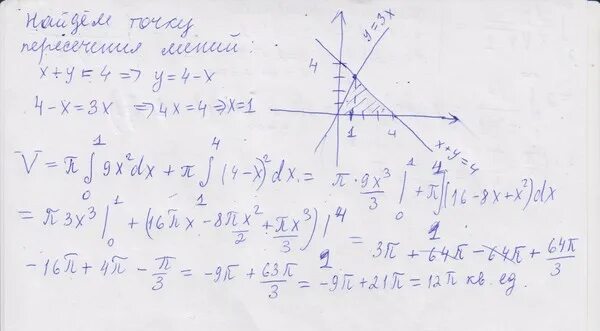 Найдём точку
пересечения линий:
x+y=4 => y=4-x
4-x=3x => 4x=4 => x=1
y=3x
4
1
4
x+y=4
V = π∫₀¹ 9x²dx + π∫₁⁴ (4-x)²dx = π·9x³/3 |₀¹ + π∫₁⁴(16-8x+x²)dx
= π3x³|₀¹ + (16πx - 8πx²/2 + πx³/3)|₁⁴ = 3π + 64π - 64π + 64π/3
-16π + 4π - π/3 = -9π + 63π/3 = -9π + 21π = 12π кв. ед.